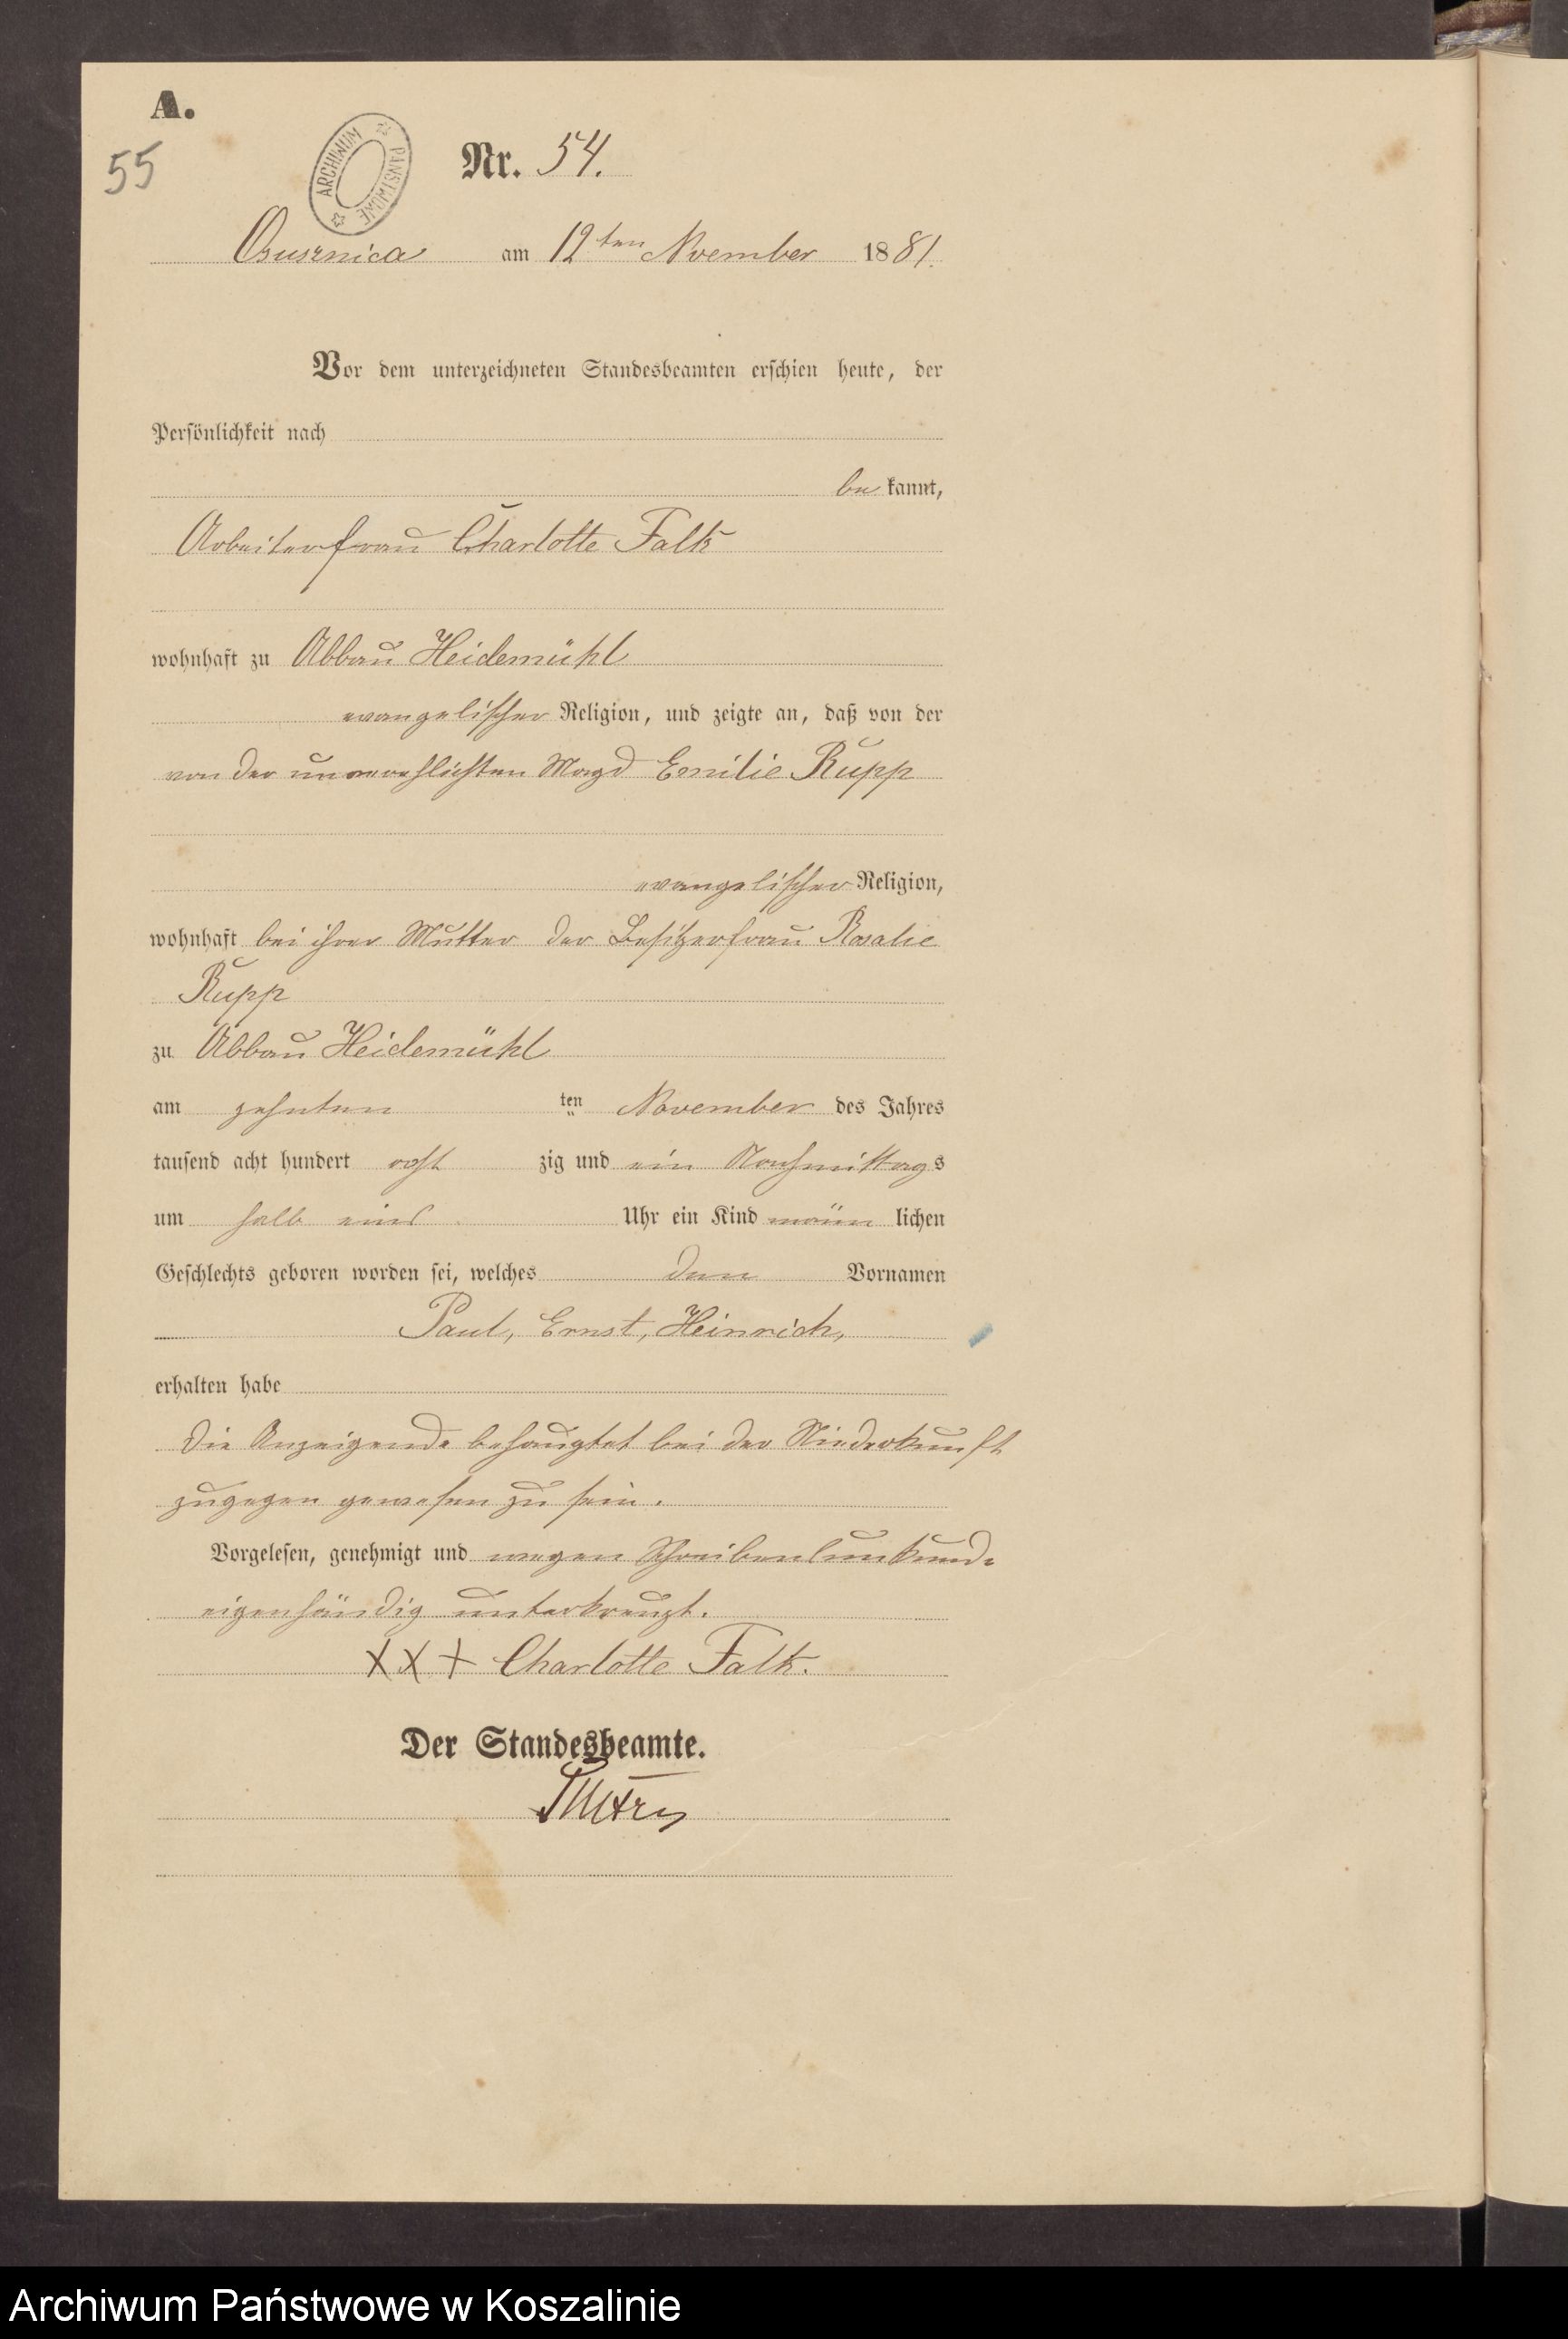 A.
55
ARCHIWUM PAŃSTWOWE
Nr. 54.
Osusznica am 12ten November 1881.
Vor dem unterzeichneten Standesbeamten erschien heute, der
Persönlichkeit nach
bekannt,
Arbeiterfrau Charlotte Falk
wohnhaft zu Abbau Heidemühl
evangelischer Religion, und zeigte an, daß von der
von der unverehlichten Magd Emilie Rupp
evangelischer Religion,
wohnhaft bei ihrer Mutter der Besitzerfrau Rosalie
Rupp
zu Abbau Heidemühl
am zehnten ten November des Jahres
tausend acht hundert acht zig und ein Nachmittags
um halb eins Uhr ein Kind männ lichen
Geschlechts geboren worden sei, welches den Vornamen
Paul, Ernst, Heinrich,
erhalten habe
Die Anzeigende behauptet bei der Niederkunft
zugegen gewesen zu sein.
Vorgelesen, genehmigt und wegen Schreibensunkunde
eigenhändig unterkreuzt.
XXX Charlotte Falk.
Der Standesbeamte.
Archiwum Państwowe w Koszalinie